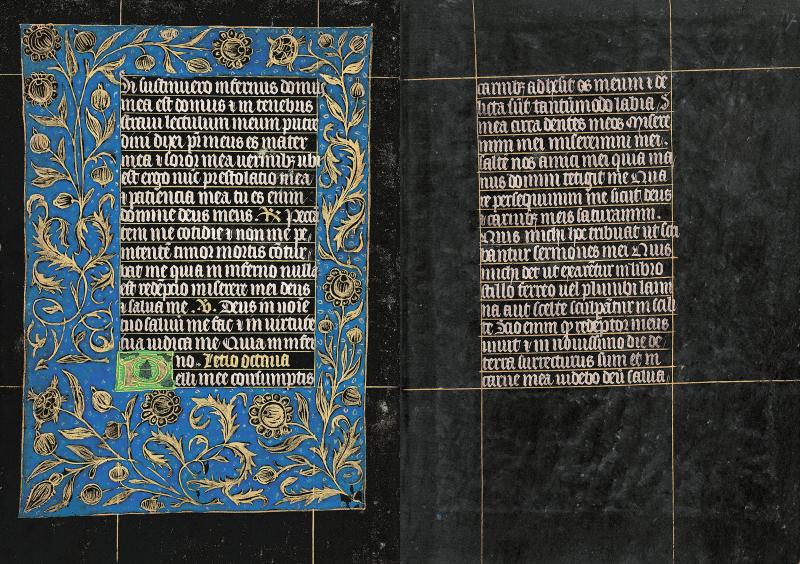 Si sustinuero infernus domus
mea est domus ⁊ in tenebris
straui lectulum meum putre
dini dixi pr̄ meus es mater
mea ⁊ soror mea uermibꝫ ubi
est ergo nūc prestolatio mea
⁊ patientia mea tu es enim
domine deus meus. ℟ Pecca
tem me cotidie ⁊ non me pe
nitentē timor mortis cōtur
bat me quia in inferno nulla
est redēptio miserere mei deus
⁊ salua me . ℣. Deus in noīe
tuo saluū me fac ⁊ in uirtute
tua iudica me Quia in infer
no. Lectio octaua
Pelli mee consumptis
carnibꝫ adhesit os meum ⁊ de
licta sūt tantūmodo labia
mea circa dentes meos Misere
mini mei miseremini mei.
saltē uos amici mei quia ma
nus domini tetigit me Qua
re persequimini me sicut deus
⁊ carnibꝫ meis saturamini.
Quis michi hoc tribuat ut scri
bantur sermones mei Quis
michi det ut exarētur in libro
stilo ferreo uel plumbi lami
na aut celte sculpātur in sili
ce Scio enim ꝙ redēptor meus
uiuit ⁊ in nouissimo die de
terra surrecturus sum et in
carne mea uidebo deū salua